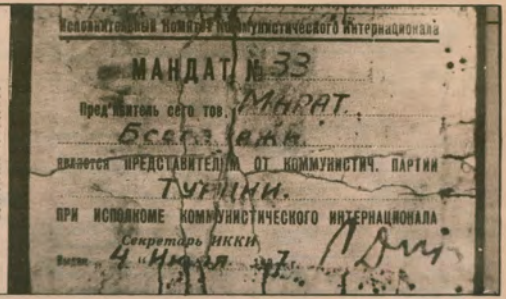 Исполнительный Комитет Коммунистического Интернационала
МАНДАТ № 33
Пред'явитель сего тов. МАРАТ.
является ПРЕДСТАВИТЕЛЕМ ОТ КОММУНИСТИЧ. ПАРТИИ
ТУРЦИИ.
ПРИ ИСПОЛКОМЕ КОММУНИСТИЧЕСКОГО ИНТЕРНАЦИОНАЛА
Секретарь ИККИ
Выдан 4 "